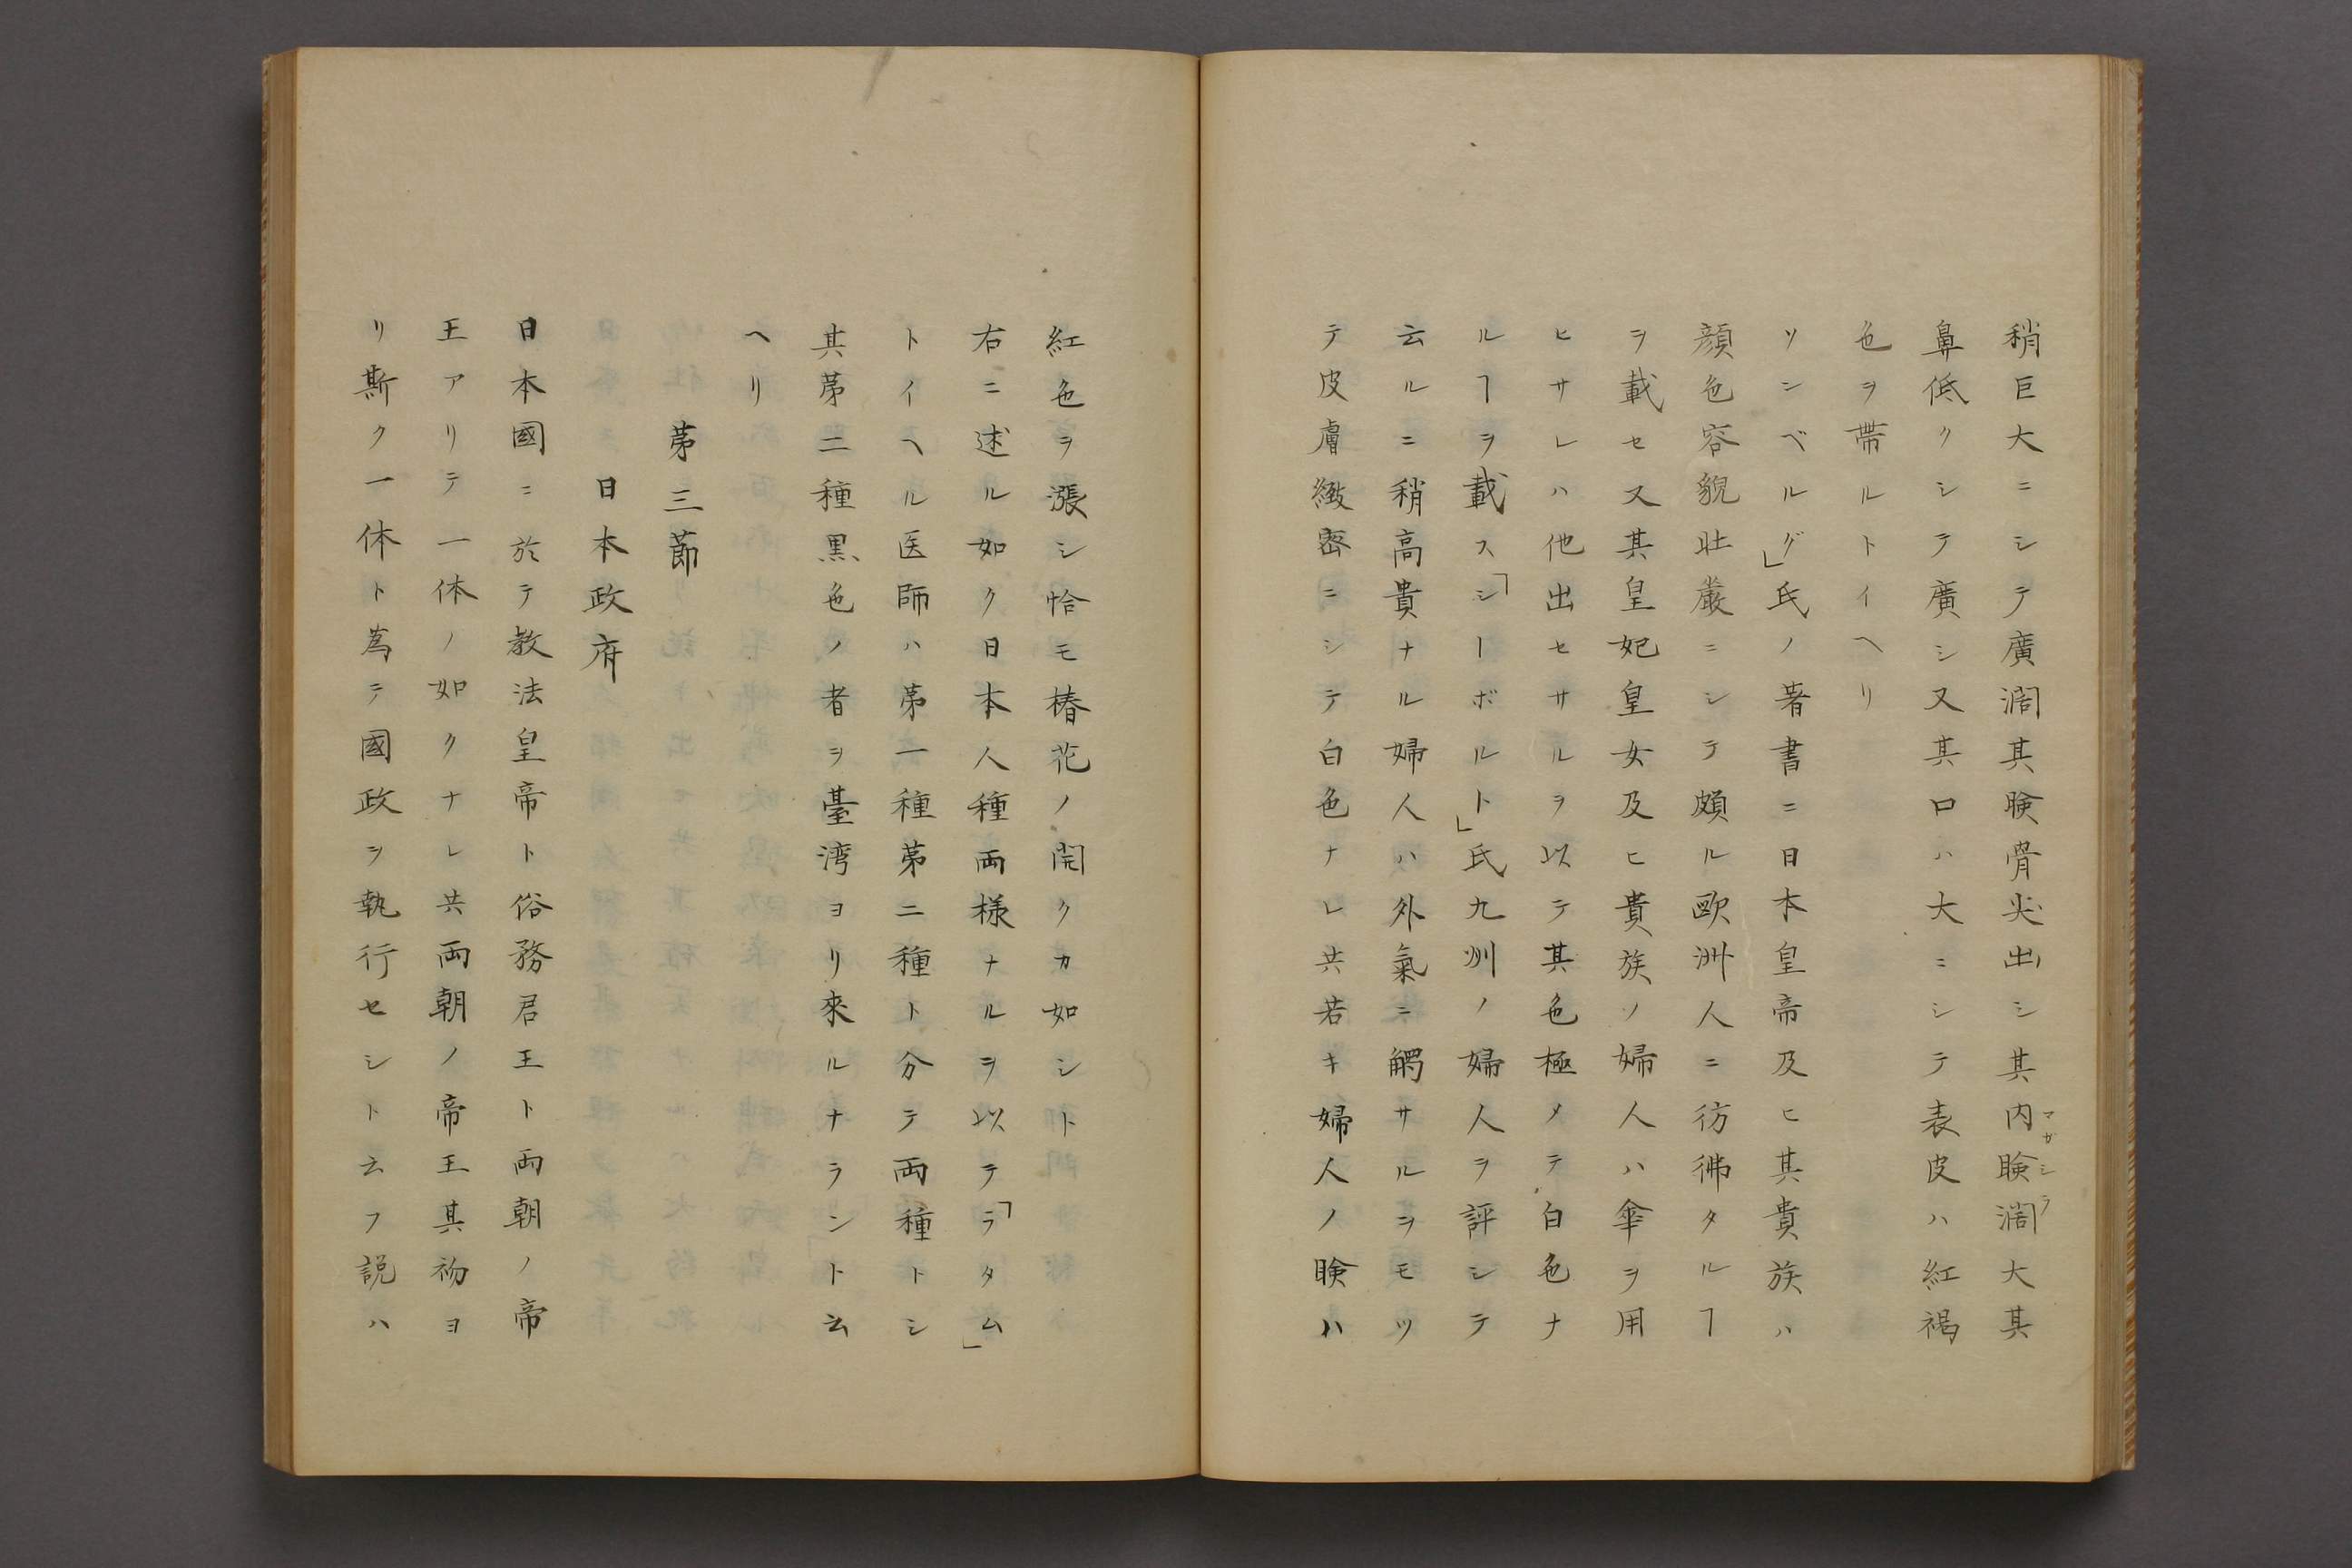 稍巨大ニシテ廣濶其瞼骨尖出シ其内瞼濶大其
マガシラ
鼻低クシテ廣シ又其口ハ大ニシテ表皮ハ紅褐
色ヲ帶ルトイヘリ
ソンベルグ」氏ノ著書ニ日本皇帝及ヒ其貴族ハ
顔色容貌壮嚴ニシテ頗ル歐洲人ニ彷彿タルヿ
ヲ載セ又其皇妃皇女及ヒ貴族ノ婦人ハ傘ヲ用
ヒサレハ他出セサルヲ以テ其色極メテ白色ナ
ルヿヲ載ス「シーボルト」氏九州ノ婦人ヲ評シテ
云ルニ稍高貴ナル婦人ハ外氣ニ觸サルヲモツ
テ皮膚緻密ニシテ白色ナレ共若キ婦人ノ瞼ハ
紅色ヲ漲シ恰モ椿花ノ開クカ如シト
右ニ述ル如ク日本人種両様ナルヲ以テ「ラタム」
トイヘル医師ハ第一種第二種ト分テ両種トシ
其第二種黒色ノ者ヲ臺湾ヨリ來ルナラント云
ヘリ
第三節
日本政府
日本國ニ於テ教法皇帝ト俗務君王ト両朝ノ帝
王アリテ一体ノ如クナレ共両朝ノ帝王其初ヨ
リ斯ク一体ト爲テ國政ヲ執行セシト云フ説ハ